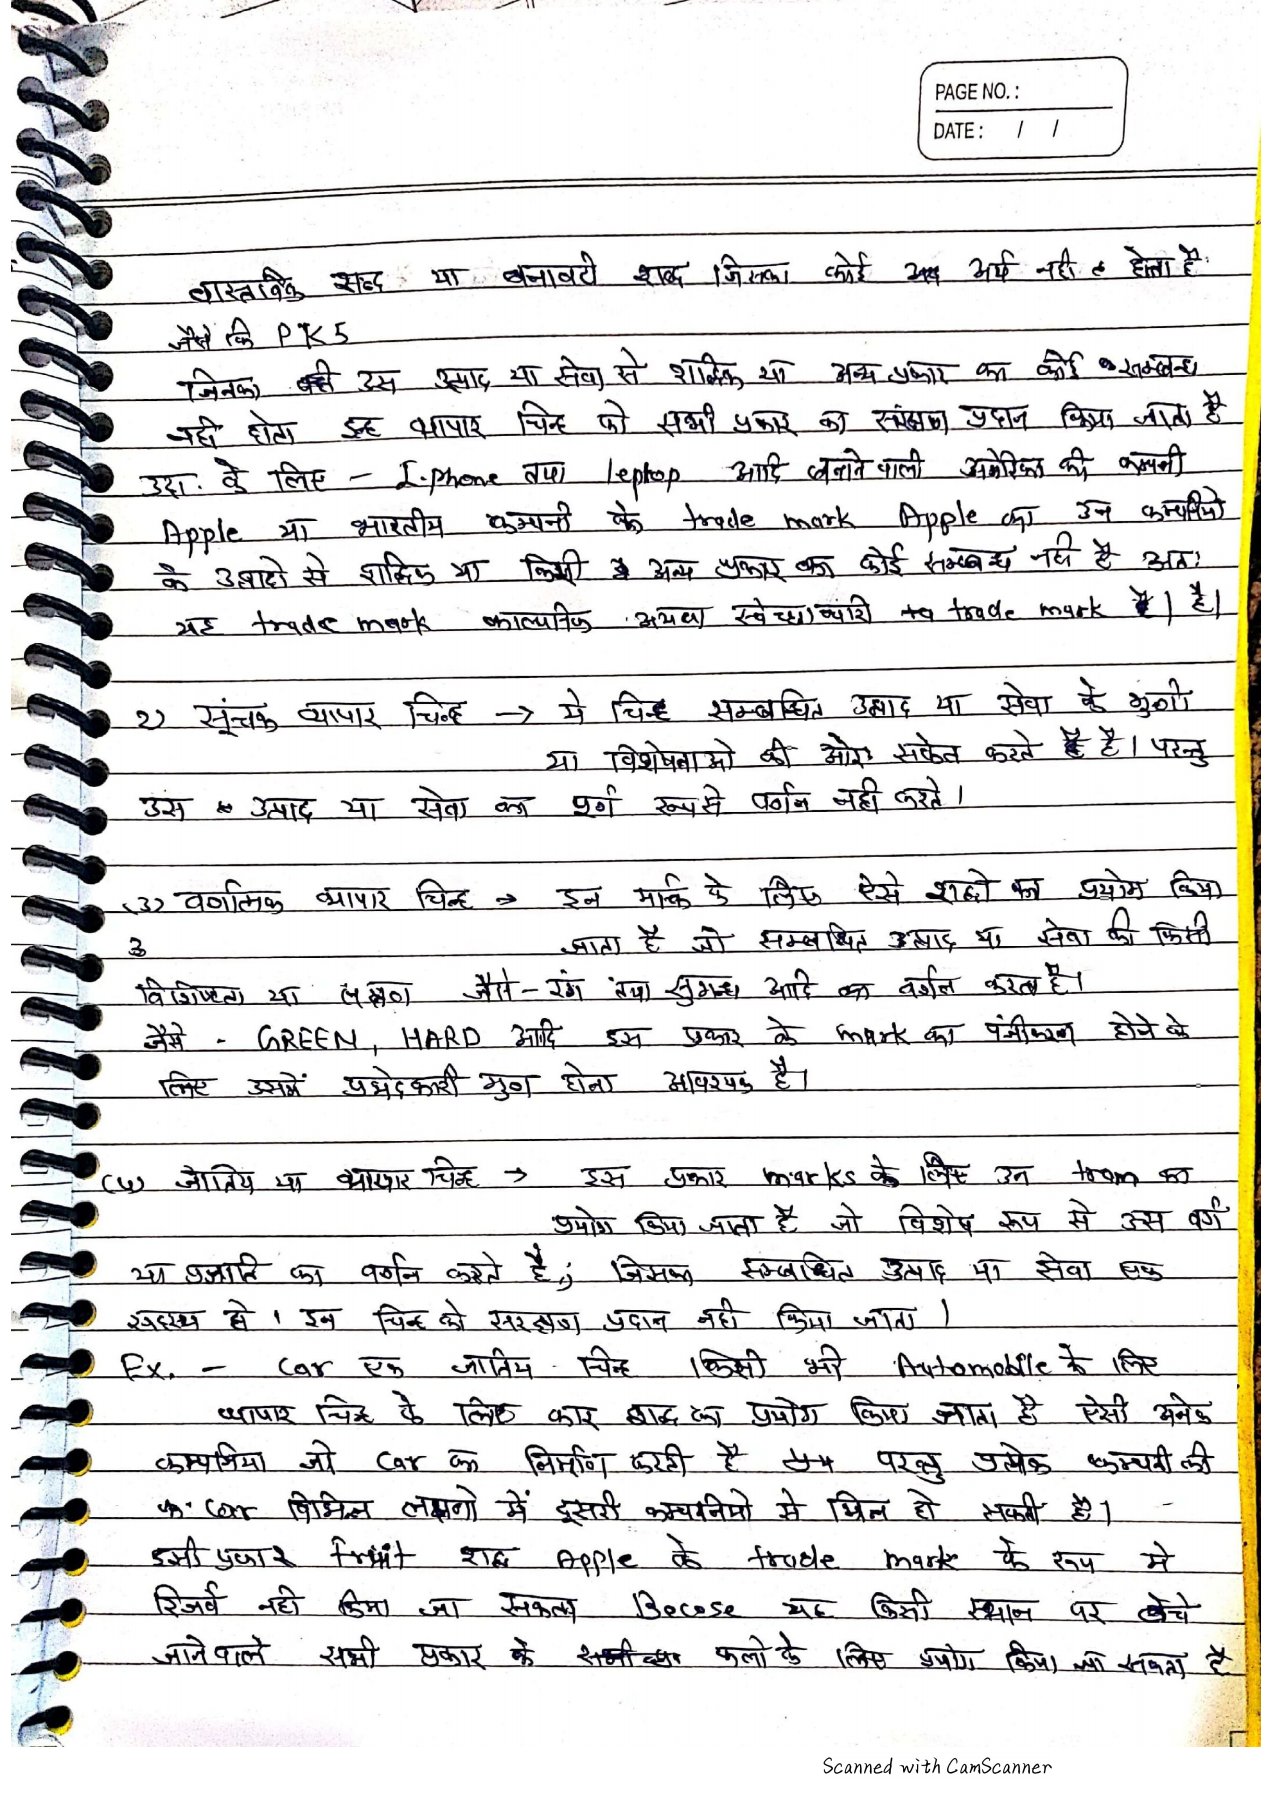 PAGE NO. :
DATE : / /
वास्तविक शब्द या बनावटी शब्द जिसका कोई अर्थ नही होता है
जैसे कि PK5
जिनका उस उत्पाद या सेवा से शाब्दिक या अन्य प्रकार का कोई सम्बन्ध
नही होता इन्ह व्यापार चिन्ह को सभी प्रकार का संरक्षण प्रदान किया जाता है
उदा: के लिए - I-phone तथा leptop आदि बनाने वाली अमेरिका की कम्पनी
Apple या भारतीय कम्पनी के trade mark Apple का उन कम्पनियो
के उत्पादो से शाब्दिक या किसी अन्य प्रकार का कोई सम्बन्ध नही है अत:
यह trade mark काल्पनिक अथवा स्वेच्छाचारी trade mark है।
2) सूंचक व्यापार चिन्ह → ये चिन्ह सम्बन्धित उत्पाद या सेवा के गुणो
या विशेषताओ की ओर सकेत करते है। परन्तु
उस उत्पाद या सेवा का पूर्ण रूप से वर्णन नही करते।
(3) वर्णात्मक व्यापार चिन्ह → इन मार्क के लिए ऐसे शब्दो का प्रयोग किया
जाता है जो सम्बन्धित उत्पाद या सेवा की किसी
विशिष्टता या लक्षण जैसे - रंग तथा सुगन्ध आदि का वर्णन करता है।
जैसे - GREEN, HARD आदि इस प्रकार के mark का पंजीकरण होने के
लिए उसमें प्रभेदकारी गुण होना आवश्यक है।
(4) जातिय या व्यापार चिन्ह → इस प्रकार marks के लिए उन tram का
प्रयोग किया जाता है जो विशेष रूप से उस वर्ग
या प्रजाति का वर्णन करते है; जिसका सम्बन्धित उत्पाद या सेवा एक
सदस्य हो। इन चिन्ह को सरक्षण प्रदान नही किया जाता।
Ex. - Car एक जातिय चिन्ह किसी भी Automobile के लिए
व्यापार चिन्ह के लिए कार शब्द का प्रयोग किया जाता है ऐसी अनेक
कम्पनिया जो Car का निर्माण करती है परन्तु प्रत्येक कम्पनी की
Car विभिन्न लक्षनो में दूसरी कम्पनियो से भिन्न हो सकती है।
इसी प्रकार fruit शब्द Apple के trade mark के रूप मे
रिजर्व नही किया जा सकता Becose यह किसी स्थान पर बेचे
जाने वाले सभी प्रकार के फलो के लिए प्रयोग किया जा सकता है
Scanned with CamScanner